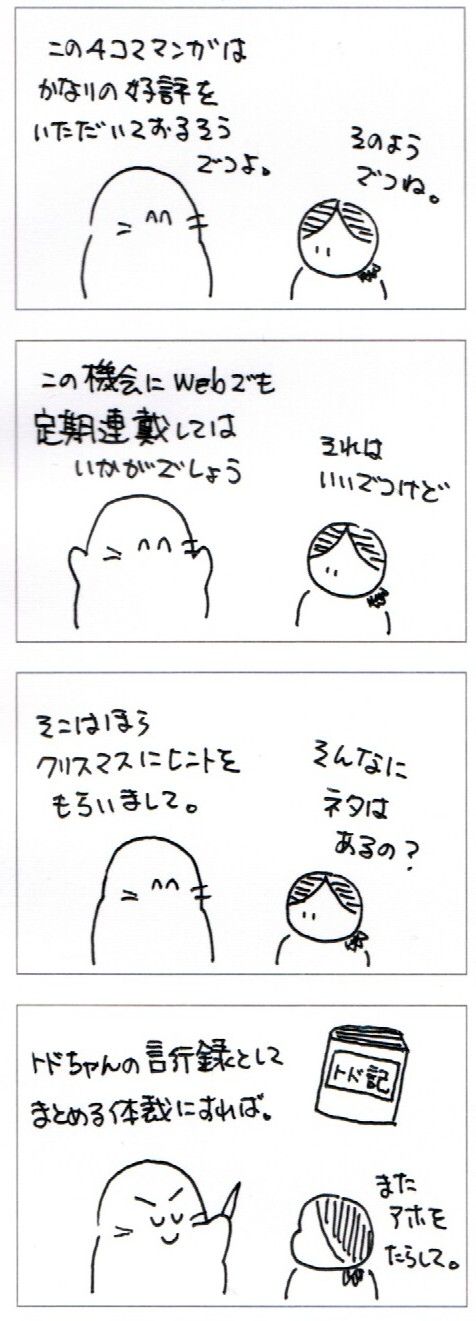 この4コママンガは
かなりの好評を
いただいておるそう
でつよ。
そのよう
でつね。
この機会にWebでも
定期連載しては
いかがでしょう
それは
いいでつけど
そこはほら
クリスマスにヒントを
もらいまして。
そんなに
ネタは
あるの?
トドちゃんの言行録として
まとめる体裁にすれば。
トド記
また
アホを
たらして。